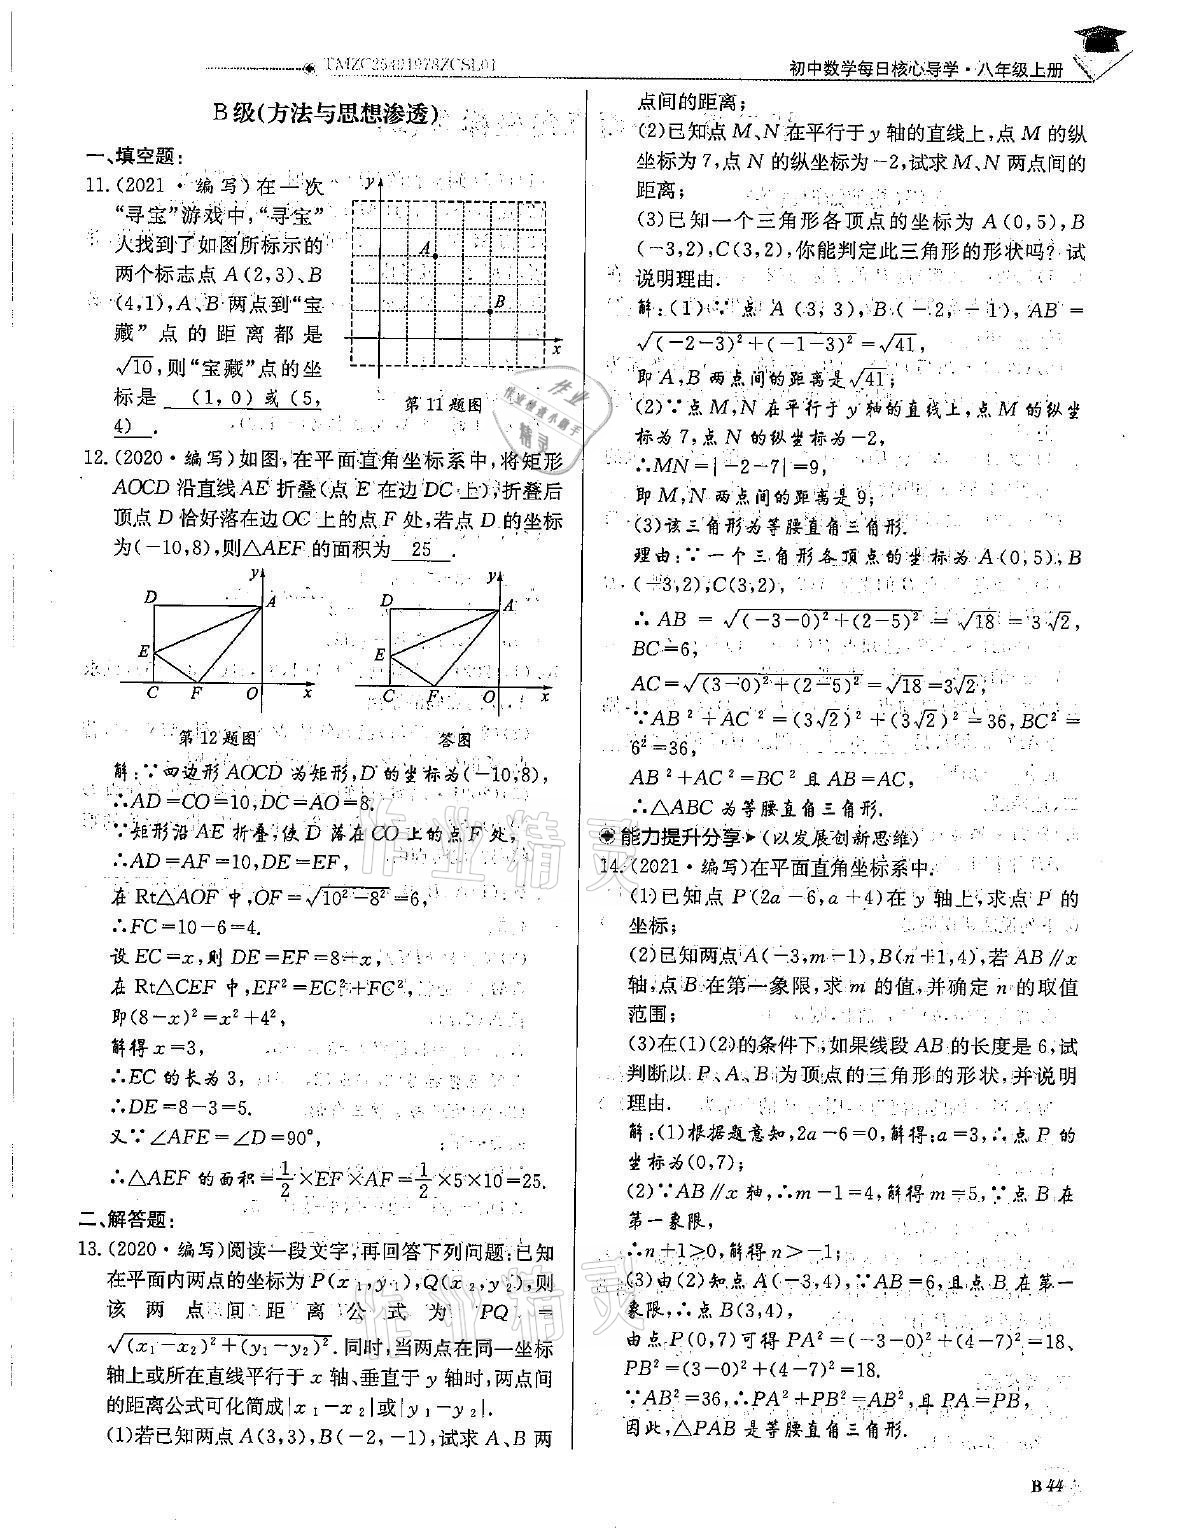 初中数学每日核心导学·八年级上册
B级(方法与思想渗透)
一、填空题:
11.(2021·编写)在一次
“寻宝”游戏中,“寻宝”
人找到了如图所标示的
两个标志点 A(2,3)、B
(4,1),A、B 两点到“宝
藏”点的距离都是
√10,则“宝藏”点的坐
标是 (1,0)或(5,
4) .
y
A
B
x
第11题图
12.(2020·编写)如图,在平面直角坐标系中,将矩形
AOCD 沿直线 AE 折叠(点 E 在边 DC 上),折叠后
顶点 D 恰好落在边 OC 上的点 F 处,若点 D 的坐标
为(-10,8),则△AEF 的面积为 25 .
D y A E C F O x
第12题图
D y A E C F O x
答图
解:∵四边形 AOCD 为矩形,D 的坐标为(-10,8),
∴AD=CO=10,DC=AO=8.
∵矩形沿 AE 折叠,使 D 落在 CO 上的点 F 处,
∴AD=AF=10,DE=EF,
在 Rt△AOF 中,OF=√(10²-8²)=6,
∴FC=10-6=4.
设 EC=x,则 DE=EF=8-x,
在 Rt△CEF 中,EF²=EC²+FC²,
即(8-x)²=x²+4²,
解得 x=3,
∴EC 的长为 3,
∴DE=8-3=5.
又∵∠AFE=∠D=90°,
∴△AEF 的面积=1/2×EF×AF=1/2×5×10=25.
二、解答题:
13.(2020·编写)阅读一段文字,再回答下列问题:已知
在平面内两点的坐标为 P(x₁,y₁),Q(x₂,y₂),则
该两点间距离公式为 PQ=
√((x₁-x₂)²+(y₁-y₂)²).同时,当两点在同一坐标
轴上或所在直线平行于 x 轴、垂直于 y 轴时,两点间
的距离公式可化简成|x₁-x₂|或|y₁-y₂|.
(1)若已知两点 A(3,3),B(-2,-1),试求 A、B 两
点间的距离;
(2)已知点 M、N 在平行于 y 轴的直线上,点 M 的纵
坐标为 7,点 N 的纵坐标为-2,试求 M、N 两点间的
距离;
(3)已知一个三角形各顶点的坐标为 A(0,5),B
(-3,2),C(3,2),你能判定此三角形的形状吗?试
说明理由.
解:(1)∵点 A(3,3),B(-2,-1),AB=
√((-2-3)²+(-1-3)²)=√41,
即 A,B 两点间的距离是√41;
(2)∵点 M,N 在平行于 y 轴的直线上,点 M 的纵坐
标为 7,点 N 的纵坐标为-2,
∴MN=|-2-7|=9,
即 M,N 两点间的距离是 9;
(3)该三角形为等腰直角三角形.
理由:∵一个三角形各顶点的坐标为 A(0,5),B
(-3,2),C(3,2),
∴AB=√((-3-0)²+(2-5)²)=√18=3√2,
BC=6,
AC=√((3-0)²+(2-5)²)=√18=3√2,
∵AB²+AC²=(3√2)²+(3√2)²=36,BC²=
6²=36,
AB²+AC²=BC² 且 AB=AC,
∴△ABC 为等腰直角三角形.
能力提升分享▸(以发展创新思维)
14.(2021·编写)在平面直角坐标系中.
(1)已知点 P(2a-6,a+4)在 y 轴上,求点 P 的
坐标;
(2)已知两点 A(-3,m-1),B(n+1,4),若 AB∥x
轴,点 B 在第一象限,求 m 的值,并确定 n 的取值
范围;
(3)在(1)(2)的条件下,如果线段 AB 的长度是 6,试
判断以 P、A、B 为顶点的三角形的形状,并说明
理由.
解:(1)根据题意知,2a-6=0,解得:a=3,∴点 P 的
坐标为(0,7);
(2)∵AB∥x 轴,∴m-1=4,解得 m=5,∵点 B 在
第一象限,
∴n+1>0,解得 n>-1;
(3)由(2)知点 A(-3,4),∵AB=6,且点 B 在第一
象限,∴点 B(3,4),
由点 P(0,7)可得 PA²=(-3-0)²+(4-7)²=18、
PB²=(3-0)²+(4-7)²=18.
∵AB²=36,∴PA²+PB²=AB²,且 PA=PB,
因此,△PAB 是等腰直角三角形.
B 44
作业精灵
作业精灵